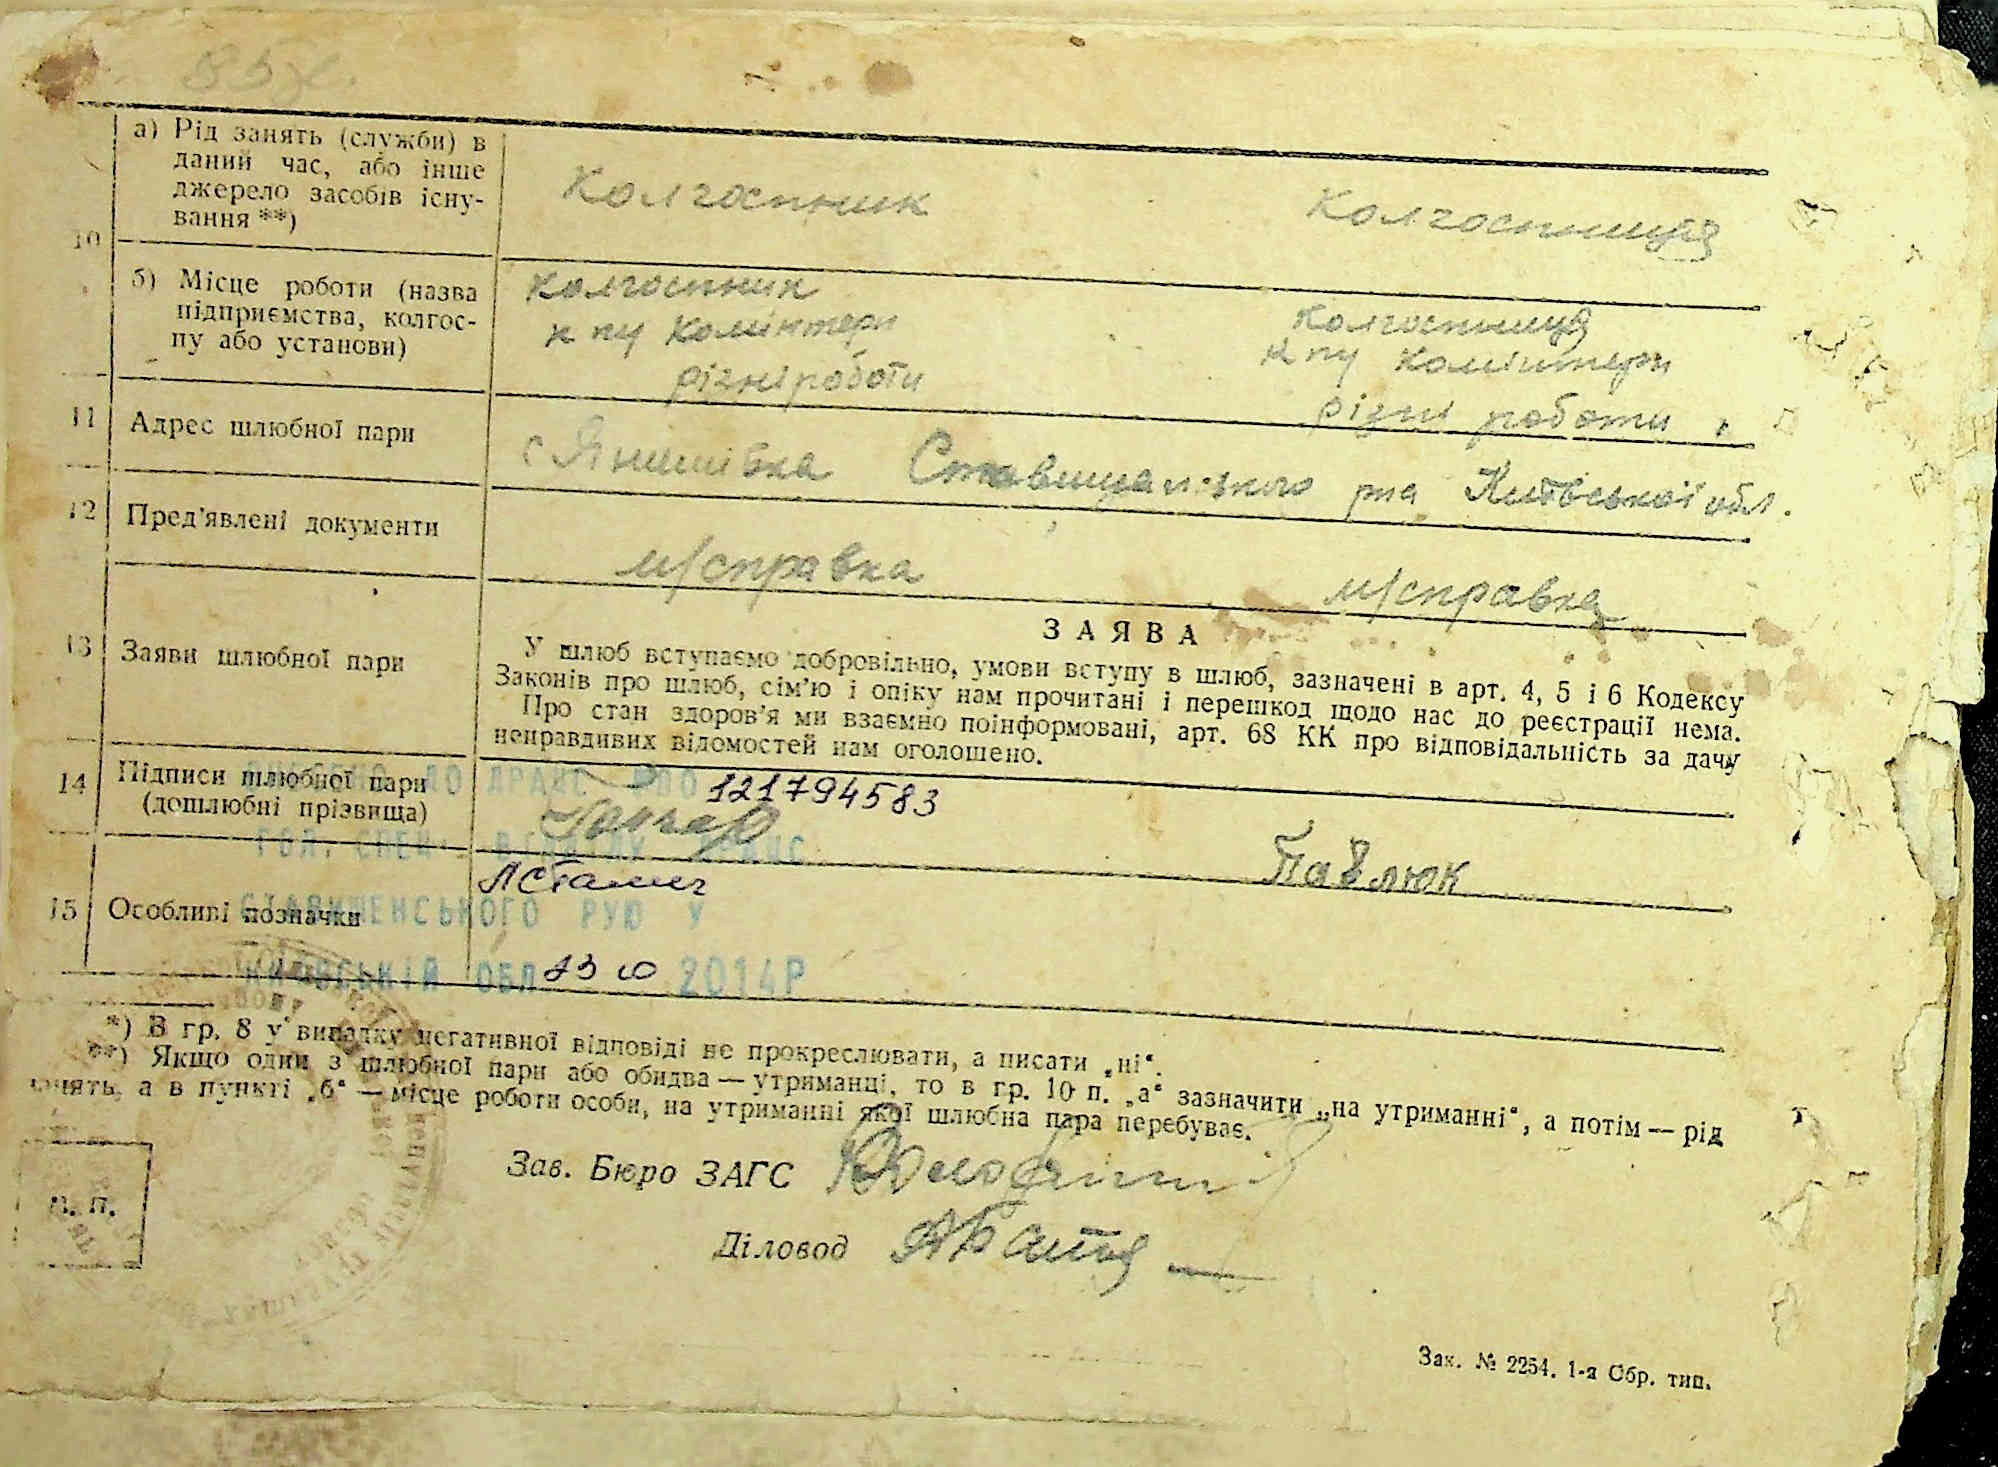 а) Рід занять (служби) в
даний час, або інше
джерело засобів існу-
вання **)
Колгоспник
Колгоспниця
10
б) Місце роботи (назва
підприємства, колгос-
пу або установи)
колгоспник
к пу Комінтерн
різні роботи
колгоспниця
к пу Комінтерн
різні роботи
11
Адрес шлюбної пари
с Янишівка Ставищанського рна Київської обл.
12
Пред'явлені документи
м/справка
м/справка
13
Заяви шлюбної пари
ЗАЯВА
У шлюб вступаємо добровільно, умови вступу в шлюб, зазначені в арт. 4, 5 і 6 Кодексу
Законів про шлюб, сім'ю і опіку нам прочитані і перешкод щодо нас до реєстрації нема.
Про стан здоров'я ми взаємно поінформовані, арт. 68 КК про відповідальність за дачу
неправдивих відомостей нам оголошено.
14
Підписи шлюбної пари
(дошлюбні прізвища)
ДО ДРАЦС
121794583
Гончар
Павлюк
ГОЛ. СПЕЦ. ВІДДІЛУ
15
Особливі позначки
СТАВИЩЕНСЬКОГО РУЮ У
КИЇВСЬКІЙ ОБЛ 23 10 2014Р
*) В гр. 8 у випадку негативної відповіді не прокреслювати, а писати „ні“.
**) Якщо один з шлюбної пари або обидва — утриманці, то в гр. 10 п. „а“ зазначити „на утриманні“, а потім — рід
занять, а в пункті „б“ — місце роботи особи, на утриманні якої шлюбна пара перебуває.
Зав. Бюро ЗАГС
М. П.
Діловод
Зак. № 2254. 1-а Обр. тип.